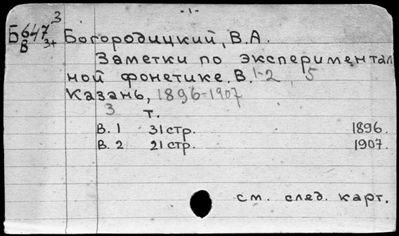 - 1 -
Б647 3
В 3+
Богородицкий, В.А.
Заметки по эксперименталь
ной фонетике. В. 1-2, 5
Казань, 1896-1907
3 т.
В. 1 31 стр. 1896.
В. 2 21 стр. 1907.
см. след. карт.